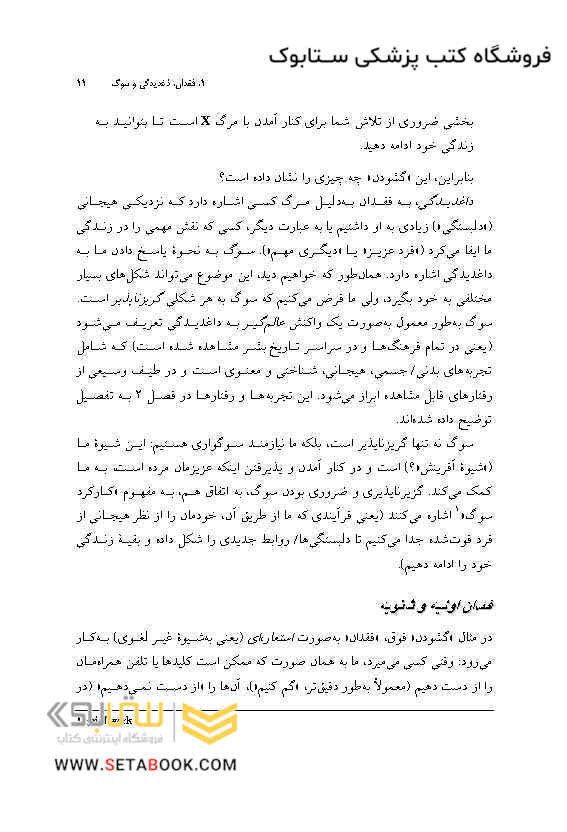 فروشگاه کتب پزشکی ســتابوک
۱. فقدان، داغدیدگی و سوگ ۱۱
بخشی ضروری از تلاش شما برای کنار آمدن با مرگ X است تا بتوانید به
زندگی خود ادامه دهید.
بنابراین، این «گشودن» چه چیزی را نشان داده است؟
داغدیدگی، به فقدان به‌دلیل مرگ کسی اشاره دارد که نزدیکی هیجانی
(«دلبستگی») زیادی به او داشتیم یا به عبارت دیگر، کسی که نقش مهمی را در زندگی
ما ایفا می‌کرد («فرد عزیز» یا «دیگری مهم»). سوگ به نحوۀ پاسخ دادن ما به
داغدیدگی اشاره دارد. همان‌طور که خواهیم دید، این موضوع می‌تواند شکل‌های بسیار
مختلفی به خود بگیرد، ولی ما فرض می‌کنیم که سوگ به هر شکلی گریزناپذیر است.
سوگ به‌طور معمول به‌صورت یک واکنش عالم‌گیر به داغدیدگی تعریف می‌شود
(یعنی در تمام فرهنگ‌ها و در سراسر تاریخ بشر مشاهده شده است) که شامل
تجربه‌های بدنی/ جسمی، هیجانی، شناختی و معنوی است و در طیف وسیعی از
رفتارهای قابل مشاهده ابراز می‌شود. این تجربه‌ها و رفتارها در فصل ۲ به تفصیل
توضیح داده شده‌اند.
سوگ نه تنها گریزناپذیر است، بلکه ما نیازمند سوگواری هستیم: این شیوۀ ما
(«شیوۀ آفرینش»؟) است و در کنار آمدن و پذیرفتن اینکه عزیزمان مرده است، به ما
کمک می‌کند. گریزناپذیری و ضروری بودن سوگ، به اتفاق هم، به مفهوم «کارکرد
سوگ»۱ اشاره می‌کنند (یعنی فرآیندی که ما از طریق آن، خودمان را از نظر هیجانی از
فرد فوت‌شده جدا می‌کنیم تا دلبستگی‌ها/ روابط جدیدی را شکل داده و بقیۀ زندگی
خود را ادامه دهیم).
فقدان اولیه و ثانویه
در مثال «گشودن» فوق، «فقدان» به‌صورت استعاره‌ای (یعنی به‌شیوۀ غیر لغوی) به‌کار
می‌رود: وقتی کسی می‌میرد، ما به همان صورت که ممکن است کلیدها یا تلفن همراه‌مان
را از دست دهیم (معمولاً به‌طور دقیق‌تر، «گم کنیم»)، آن‌ها را «از دست نمی‌دهیم» (در
ستابوک
فروشگاه اینترنتی کتاب
WWW.SETABOOK.COM